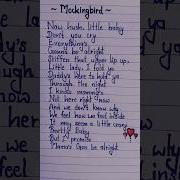 ~ Mockingbird ~
Now hush little baby
Don't you cry
Everything's
Gonna be alright
Stiffen that upper lip up
Little lady, I told ya
Daddy's here to hold ya
Through the night
I know mommy's
Not here right now
And we don't know why
We feel how we feel inside
It may seem a little crazy
Pretty Baby
But I promise
Mama's Gon be alright